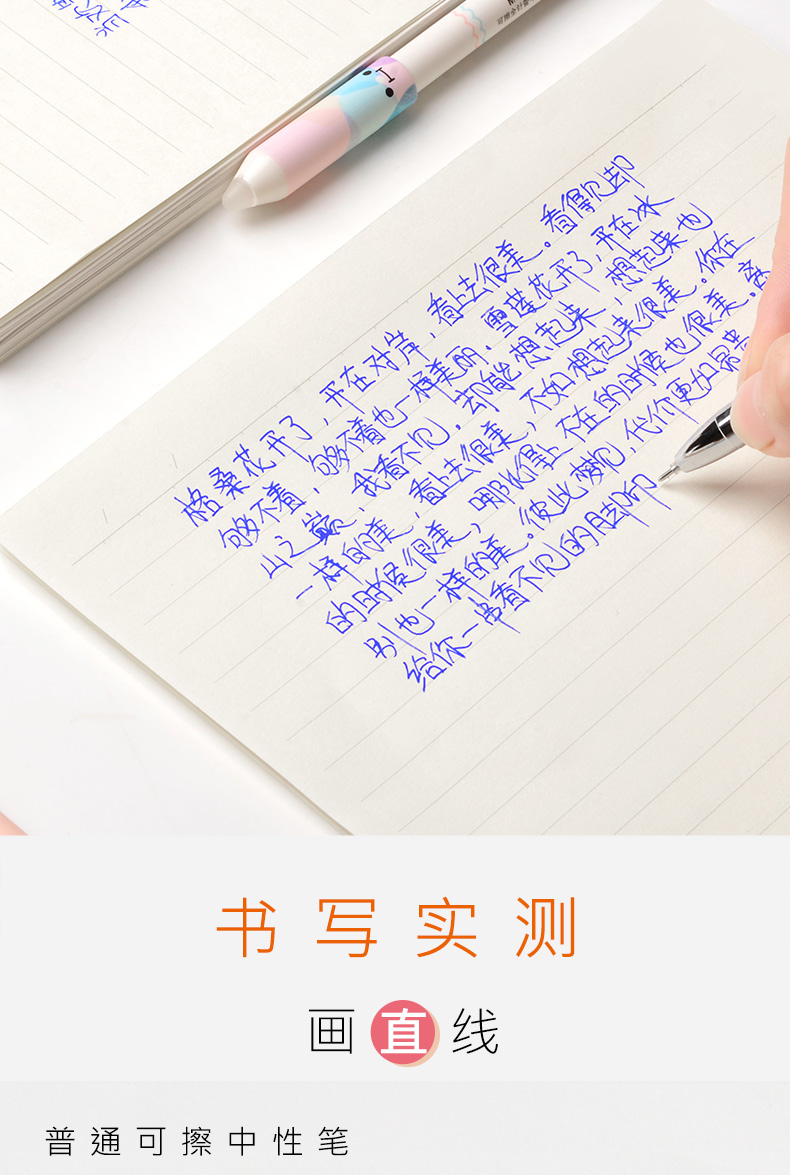 格桑花开了，开在对岸，看上去很美。看得见却
够不着，够不着也一样美丽。雪莲花开了，开在冰
山之巅，我看不见，却能想起来，想起来也
一样的美，看上去很美，不如想起来很美。你在
的时候很美，哪比得上不在的时候也很美。
别也一样的美。彼此梯见，代价更加昂贵
给你一串看不见的脚印
书写实测
画直线
普通可擦中性笔